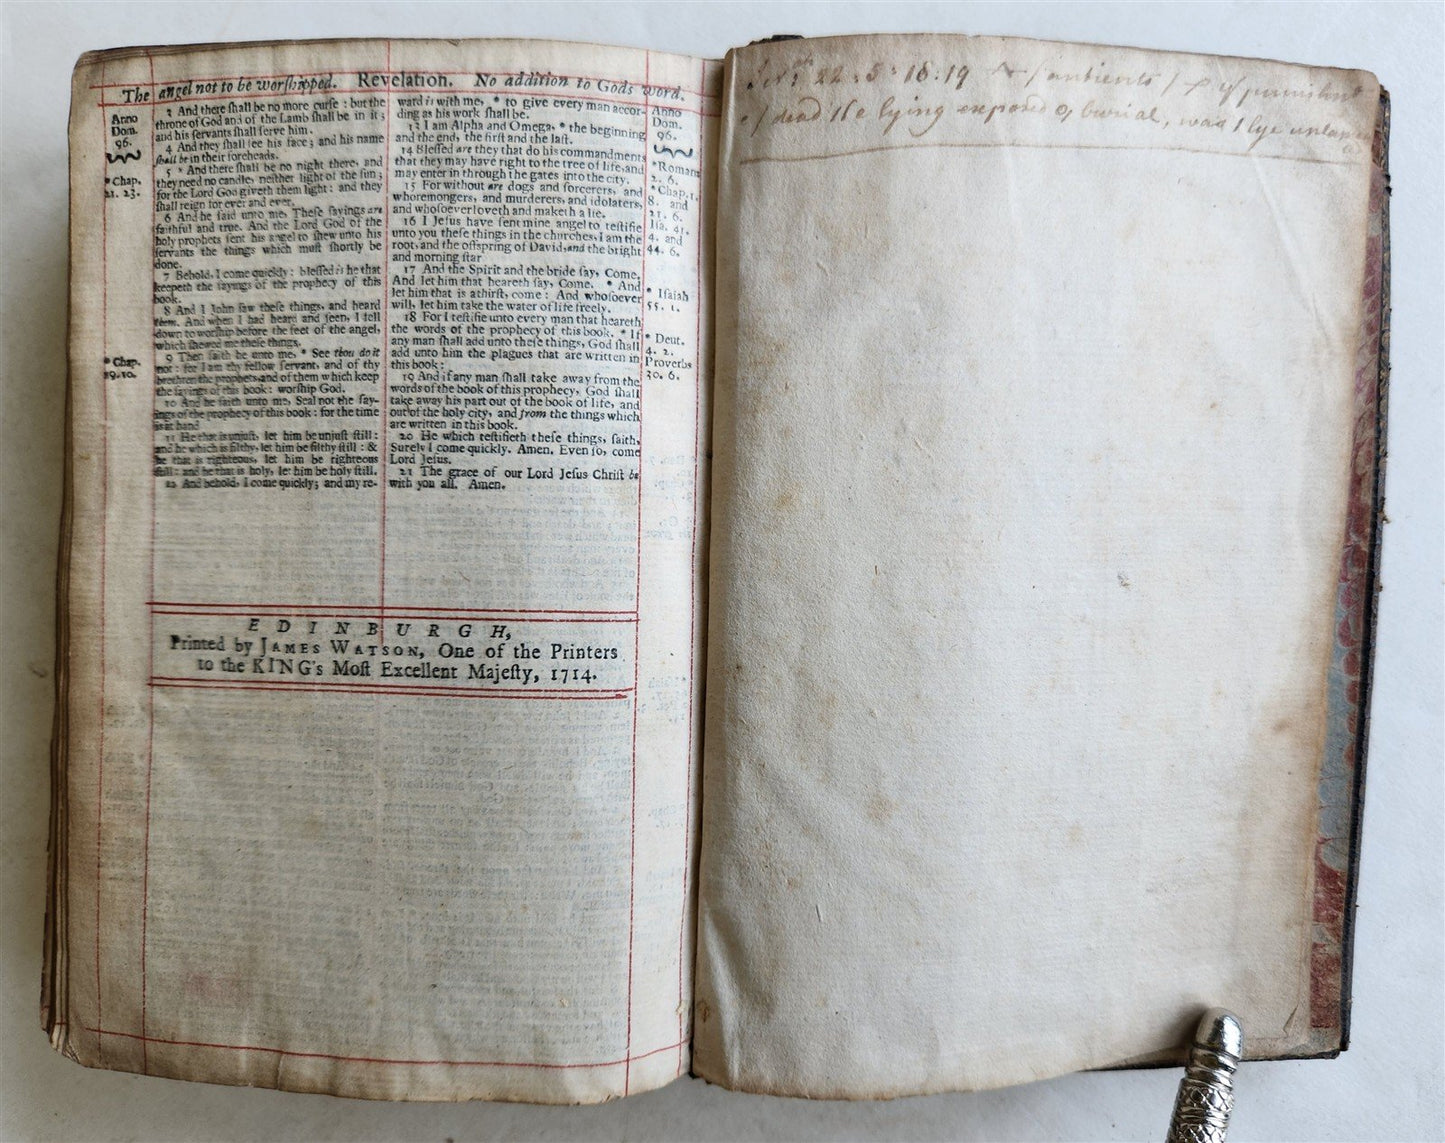 The angel not to be worſhipped. Revelation. No addition to Gods word.
Anno
Dom.
96.
* Chap.
21. 23.
* Chap.
19. 10.
3 And there ſhall be no more curſe : but the
throne of God and of the Lamb ſhall be in it ;
and his ſervants ſhall ſerve him.
4 And they ſhall ſee his face ; and his name
ſhall be in their foreheads.
5 * And there ſhall be no night there, and
they need no candle, neither light of the ſun ;
for the Lord God giveth them light : and they
ſhall reign for ever and ever.
6 And he ſaid unto me, Theſe ſayings are
faithful and true. And the Lord God of the
holy prophets ſent his angel to ſhew unto his
ſervants the things which muſt ſhortly be
done.
7 Behold, I come quickly : bleſſed is he that
keepeth the ſayings of the prophecy of this
book.
8 And I John ſaw theſe things, and heard
them. And when I had heard and ſeen, I fell
down to worſhip before the feet of the angel,
which ſhewed me theſe things.
9 Then ſaith he unto me, * See thou do it
not : for I am thy fellow ſervant, and of thy
brethren the prophets, and of them which keep
the ſayings of this book : worſhip God.
10 And he ſaith unto me, Seal not the ſay-
ings of the prophecy of this book : for the time
is at hand
11 He that is unjuſt, let him be unjuſt ſtill :
and he which is filthy, let him be filthy ſtill : &
he that is righteous, let him be righteous
ſtill : and he that is holy, let him be holy ſtill.
12 And behold, I come quickly ; and my re-
ward is with me, * to give every man accor-
ding as his work ſhall be.
13 I am Alpha and Omega, * the beginning
and the end, the firſt and the laſt.
14 Bleſſed are they that do his commandments
that they may have right to the tree of life, and
may enter in through the gates into the city.
15 For without are dogs and ſorcerers, and
whoremongers, and murderers, and idolaters,
and whoſoever loveth and maketh a lie.
16 I Jeſus have ſent mine angel to teſtifie
unto you theſe things in the churches. I am the
root, and the offspring of David, and the bright
and morning ſtar
17 And the Spirit and the bride ſay, Come.
And let him that heareth ſay, Come. * And
let him that is athirſt, come : And whoſoever
will, let him take the water of life freely.
18 For I teſtifie unto every man that heareth
the words of the prophecy of this book. * If
any man ſhall add unto theſe things, God ſhall
add unto him the plagues that are written in
this book :
19 And if any man ſhall take away from the
words of the book of this prophecy, God ſhall
take away his part out of the book of life, and
out of the holy city, and from the things which
are written in this book.
20 He which teſtifieth theſe things, ſaith,
Surely I come quickly. Amen. Even ſo, come
Lord Jeſus.
21 The grace of our Lord Jeſus Chriſt be
with you all. Amen.
Anno
Dom.
96.
* Romans
2. 6.
* Chap. 1.
8. and
21. 6.
Iſa. 41.
4. and
44. 6.
* Iſaiah
55. 1.
* Deut.
4. 2.
Proverbs
30. 6.
EDINBURGH,
Printed by JAMES WATSON, One of the Printers
to the KING's Moſt Excellent Majeſty, 1714.
22 : 5 : 18 : 19
dead lying exposed burial, was